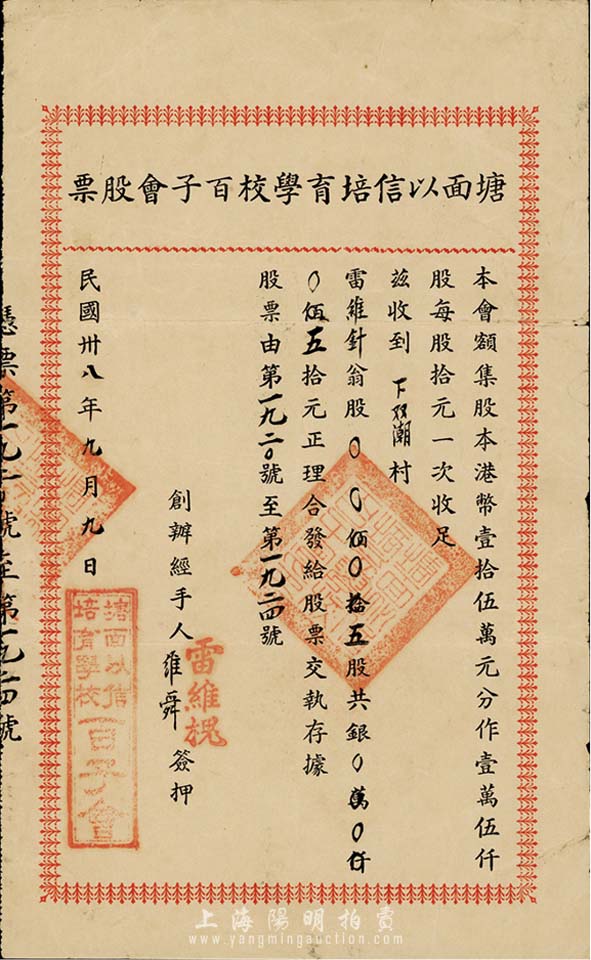 塘面以信培育學校百子會股票
本會額集股本港幣壹拾伍萬元分作壹萬伍仟
股每股拾元一次收足
茲收到 下双潮村
雷維針翁股〇〇佰〇拾五股共銀〇萬〇仟
〇佰五拾元正理合發給股票交執存據
股票由第一九二〇號至第一九二四號
創辦經手人 維舜 簽押
雷維槐
民國卅八年九月九日
塘面以信
培育學校
百子會
憑票第一九二〇號至第一九二四號
上海陽明拍賣
www.yangmingauction.com